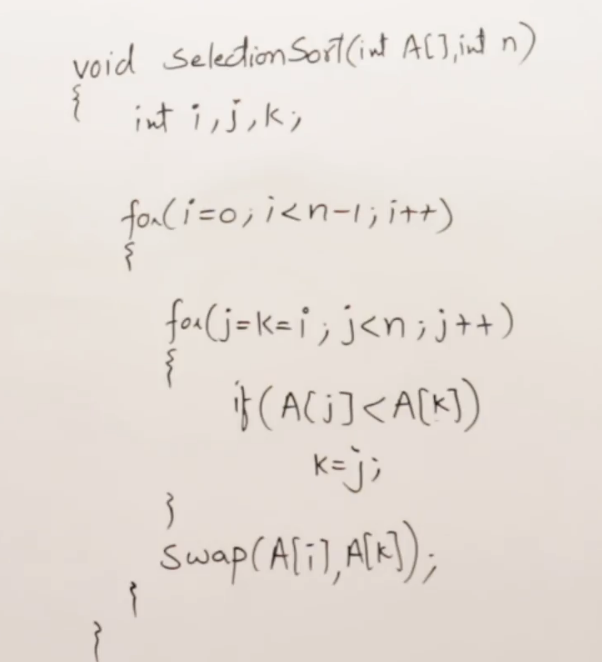 void SelectionSort(int A[],int n)
{
int i,j,k;
for(i=0;i<n-1;i++)
{
for(j=k=i;j<n;j++)
{
if(A[j]<A[k])
k=j;
}
swap(A[i],A[k]);
}
}